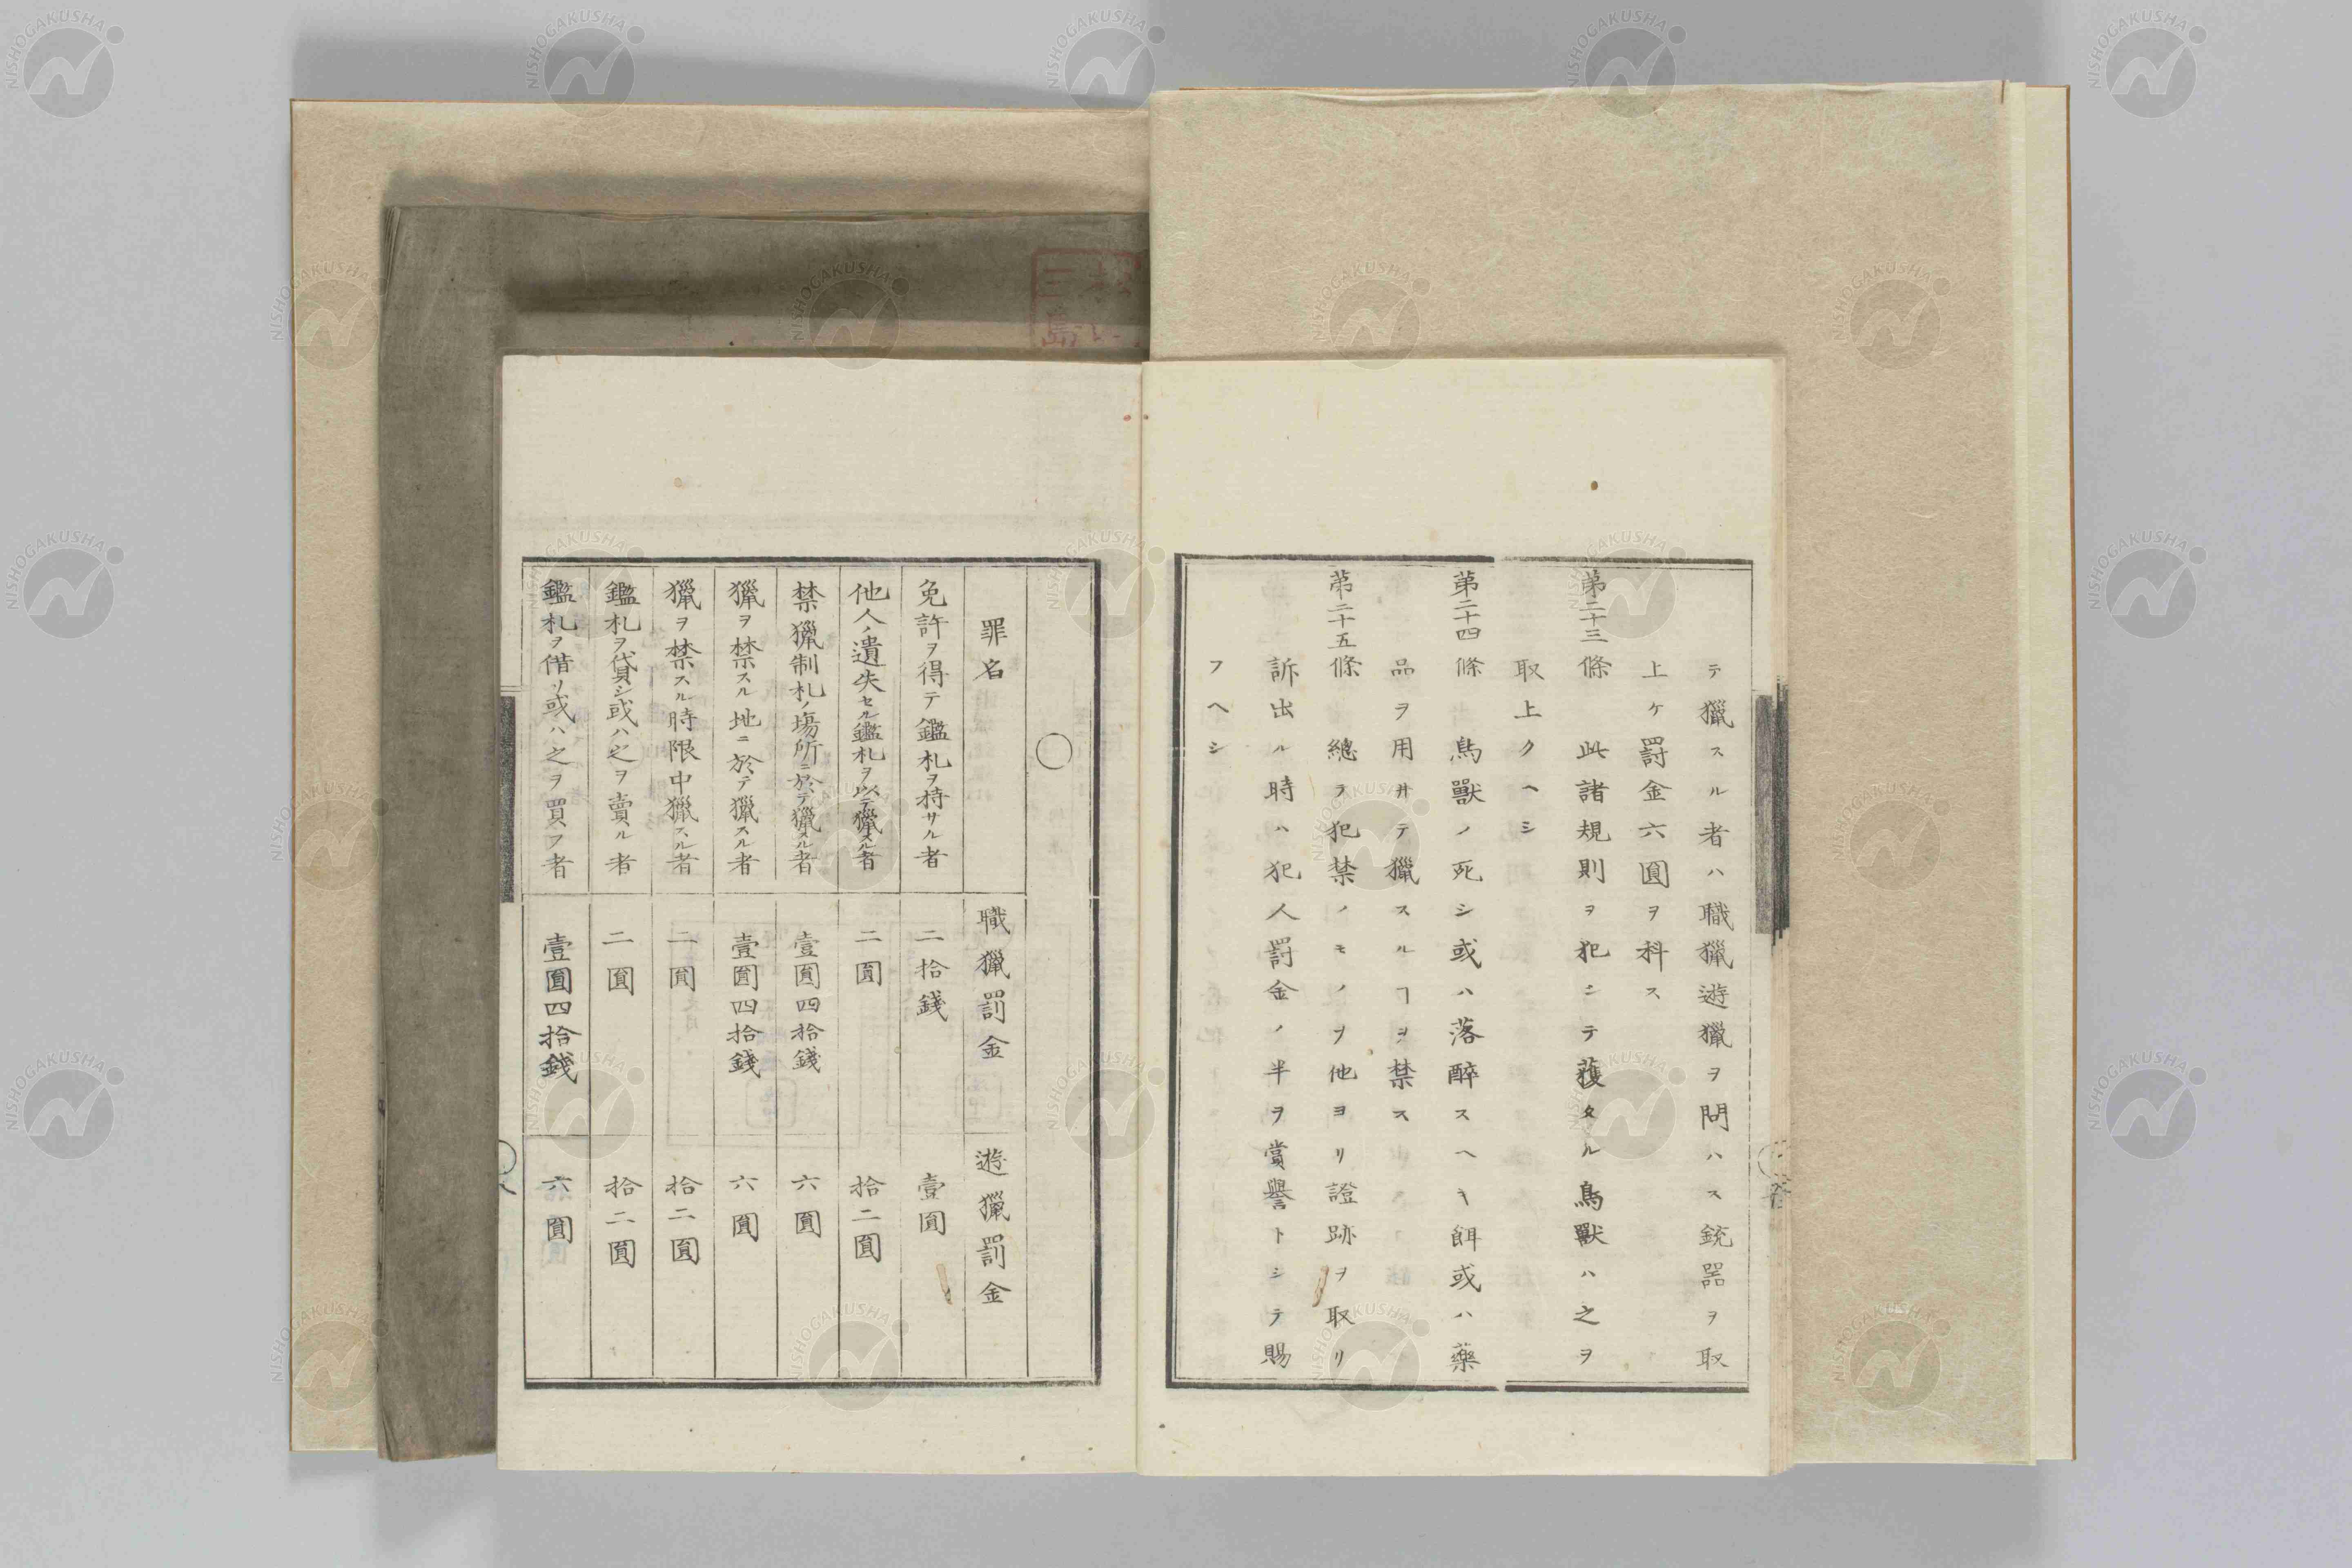 テ獵スル者ハ職獵遊獵ヲ問ハス銃器ヲ取
上ケ罰金六圓ヲ科ス
第二十三條 此諸規則ヲ犯シテ獲タル鳥獸ハ之ヲ
取上クヘシ
第二十四條 鳥獸ノ死シ或ハ落醉スヘキ餌或ハ藥
品ヲ用井テ獵スルヿヲ禁ス
第二十五條 總テ犯禁ノモノヲ他ヨリ證跡ヲ取リ
訴出ル時ハ犯人罰金ノ半ヲ賞譽トシテ賜
フヘシ
〇
罪名 職獵罰金 遊獵罰金
免許ヲ得テ鑑札ヲ持サル者 二拾錢 壹圓
他人ノ遺失セル鑑札ヲ以テ獵スル者 二圓 拾二圓
禁獵制札ノ塲所ニ於テ獵スル者 壹圓四拾錢 六圓
獵ヲ禁スル地ニ於テ獵スル者 壹圓四拾錢 六圓
獵ヲ禁スル時限中獵スル者 二圓 拾二圓
鑑札ヲ貸シ或ハ之ヲ賣ル者 二圓 拾二圓
鑑札ヲ借リ或ハ之ヲ買フ者 壹圓四拾錢 六圓
NISHOGAKUSHA